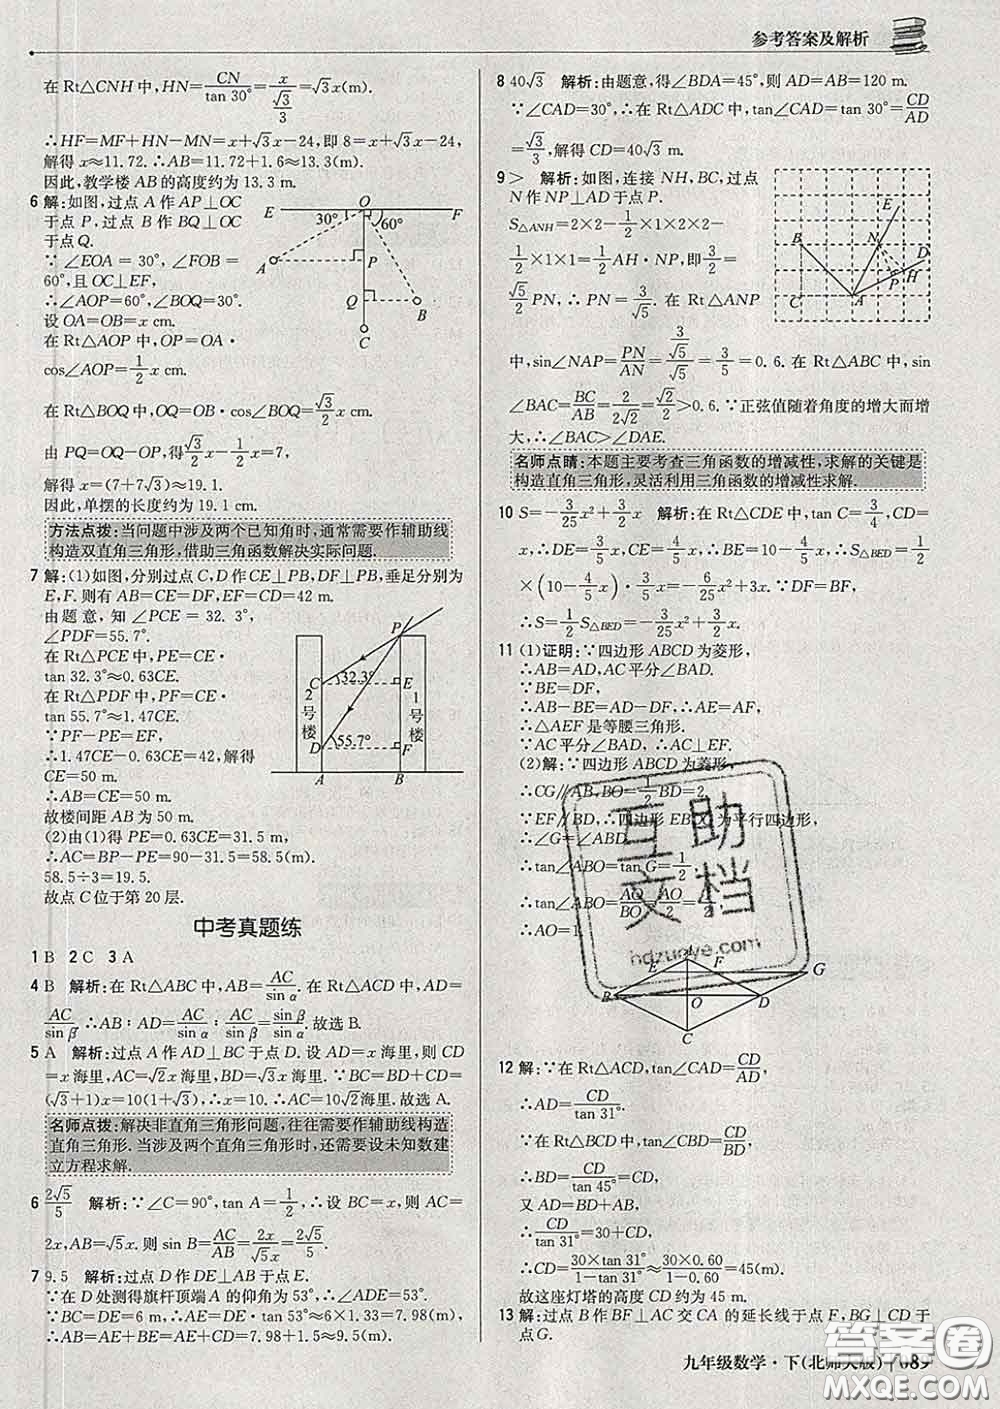 参考答案及解析
在 Rt△CNH 中,NH=CN/tan 30°=x/(√3/3)=√3x(m).
∴HF=MF+HN-MN=x+√3x-24,即 8=x+√3x-24,
解得 x≈11.72. ∴AB=11.72+1.6≈13.3(m).
因此,教学楼 AB 的高度约为 13.3 m.
6 解:如图,过点 A 作 AP⊥OC
于点 P,过点 B 作 BQ⊥OC
于点Q.
∵ ∠EOA = 30°, ∠FOB =
60°,且 OC⊥EF,
∴∠AOP=60°,∠BOQ=30°.
设 OA=OB=x cm.
在 Rt△AOP 中,OP=OA·
cos∠AOP=1/2 x cm.
在 Rt△BOQ 中,OQ=OB·cos∠BOQ=√3/2 x cm.
由 PQ=OQ-OP,可得√3/2 x-1/2 x=7,
解得 x=(7+7√3)≈19.1.
因此,单摆的长度约为 19.1 cm.
E 30° O 60° F A P Q B C
方法点拨:当问题中涉及两个已知角时,通常需要作辅助线
构造双直角三角形,借助三角函数解决实际问题.
7 解:(1)如图,分别过点 C,D 作CE⊥PB,DF⊥PB,垂足分别为
E,F. 则有 AB=CE=DF,EF=CD=42 m.
由 题 意, 知 ∠PCE = 32.3°,
∠PDF=55.7°.
在 Rt△PCE 中,PE=CE·
tan 32.3°≈0.63CE.
在 Rt△PDF 中,PF=CE·
tan 55.7°≈1.47CE.
∵PF-PE=EF,
∴1.47CE-0.63CE=42,解得
CE=50 m.
∴AB=CE=50 m.
故楼间距 AB 为 50 m.
(2)由(1)得 PE=0.63CE=31.5 m,
∴AC=BP-PE=90-31.5=58.5(m).
58.5÷3=19.5.
故点 C 位于第 20 层.
P C 32.3° E 2号楼 1号楼 D 55.7° F A B
中考真题练
1 B 2 C 3 A
4 B 解析:在 Rt△ABC 中,AB=AC/sin α. 在 Rt△ACD 中,AD=
AC/sin β. ∴AB∶AD=AC/sin α∶AC/sin β=sin β/sin α. 故选 B.
5 A 解析:过点 A 作 AD⊥BC 于点 D. 设 AD=x 海里,则 CD
=x 海里,AC=√2x 海里,BD=√3x 海里. ∵BC=BD+CD=
(√3+1)x=10(1+√3),∴x=10. ∴AC=10√2海里. 故选 A.
名师点拨:解决非直角三角形问题,往往需要作辅助线构造
直角三角形. 当涉及两个直角三角形时,还需要设未知数建
立方程求解.
6 2√5/5 解析:∵∠C=90°,tan A=1/2,∴设 BC=x,则 AC=
2x,AB=√5x. 则 sin B=AC/AB=2x/√5x=2√5/5.
7 9.5 解析:过点 D 作 DE⊥AB 于点 E.
∵在 D 处测得旗杆顶端 A 的仰角为 53°,∴∠ADE=53°.
∵BC=DE=6 m,∴AE=DE·tan 53°≈6×1.33=7.98(m).
∴AB=AE+BE=AE+CD=7.98+1.5≈9.5(m).
8 40√3 解析:由题意,得∠BDA=45°,则 AD=AB=120 m.
∵∠CAD=30°,∴在 Rt△ADC 中,tan∠CAD=tan 30°=CD/AD
=√3/3,解得 CD=40√3 m.
9 > 解析:如图,连接 NH,BC,过点
N 作 NP⊥AD 于点 P.
S△ANH=2×2-1/2×1×2×2-
1/2×1×1=1/2AH·NP,即3/2=
√5/2 PN, ∴ PN = 3/√5. 在 Rt△ANP
中,sin∠NAP=PN/AN=(3/√5)/√5=3/5=0.6. 在 Rt△ABC 中,sin
∠BAC=BC/AB=2/2√2=√2/2>0.6. ∵正弦值随着角度的增大而增
大,∴∠BAC>∠DAE.
E B N D P H C A
名师点睛:本题主要考查三角函数的增减性,求解的关键是
构造直角三角形,灵活利用三角函数的增减性求解.
10 S=-3/25x²+3/2x 解析:在 Rt△CDE 中,tan C=3/4,CD=x,
∴DE=3/5x,CE=4/5x. ∴BE=10-4/5x. ∴S△BED=1/2
×(10-4/5x)·3/5x=-6/25x²+3x. ∵DF=BF,
∴S=1/2S△BED=-3/25x²+3/2x.
11 (1)证明:∵四边形 ABCD 为菱形,
∴AB=AD,AC平分∠BAD.
∵BE=DF,
∴AB-BE=AD-DF. ∴AE=AF,
∴△AEF 是等腰三角形.
∵AC 平分∠BAD, ∴AC⊥EF.
(2)解:∵四边形 ABCD 为菱形,
∴CG∥AB,BO=1/2BD=2.
∵EF∥BD,∴四边形 EBDG 为平行四边形,
∴∠G=∠ABD.
∴tan∠ABO=tan G=1/2.
∴tan∠ABO=AO/BO=AO/2=1/2,
∴AO=1.
A E F G B O D C
12 解:∵在 Rt△ACD 中,tan∠CAD=CD/AD,
∴AD=CD/tan 31°.
∵在 Rt△BCD 中,tan∠CBD=CD/BD,
∴BD=CD/tan 45°=CD.
又 AD=BD+AB,
∴CD/tan 31°=30+CD.
∴CD=30×tan 31°/(1-tan 31°)≈30×0.60/(1-0.60)=45(m).
故这座灯塔的高度 CD 约为 45 m.
13 解:过点 B 作 BF⊥AC 交 CA 的延长线于点 F,BG⊥CD 于
点G.
九年级数学·下(北师大版) 089
互助文档
hdzuoye.com
答案圈
MXQE.COM